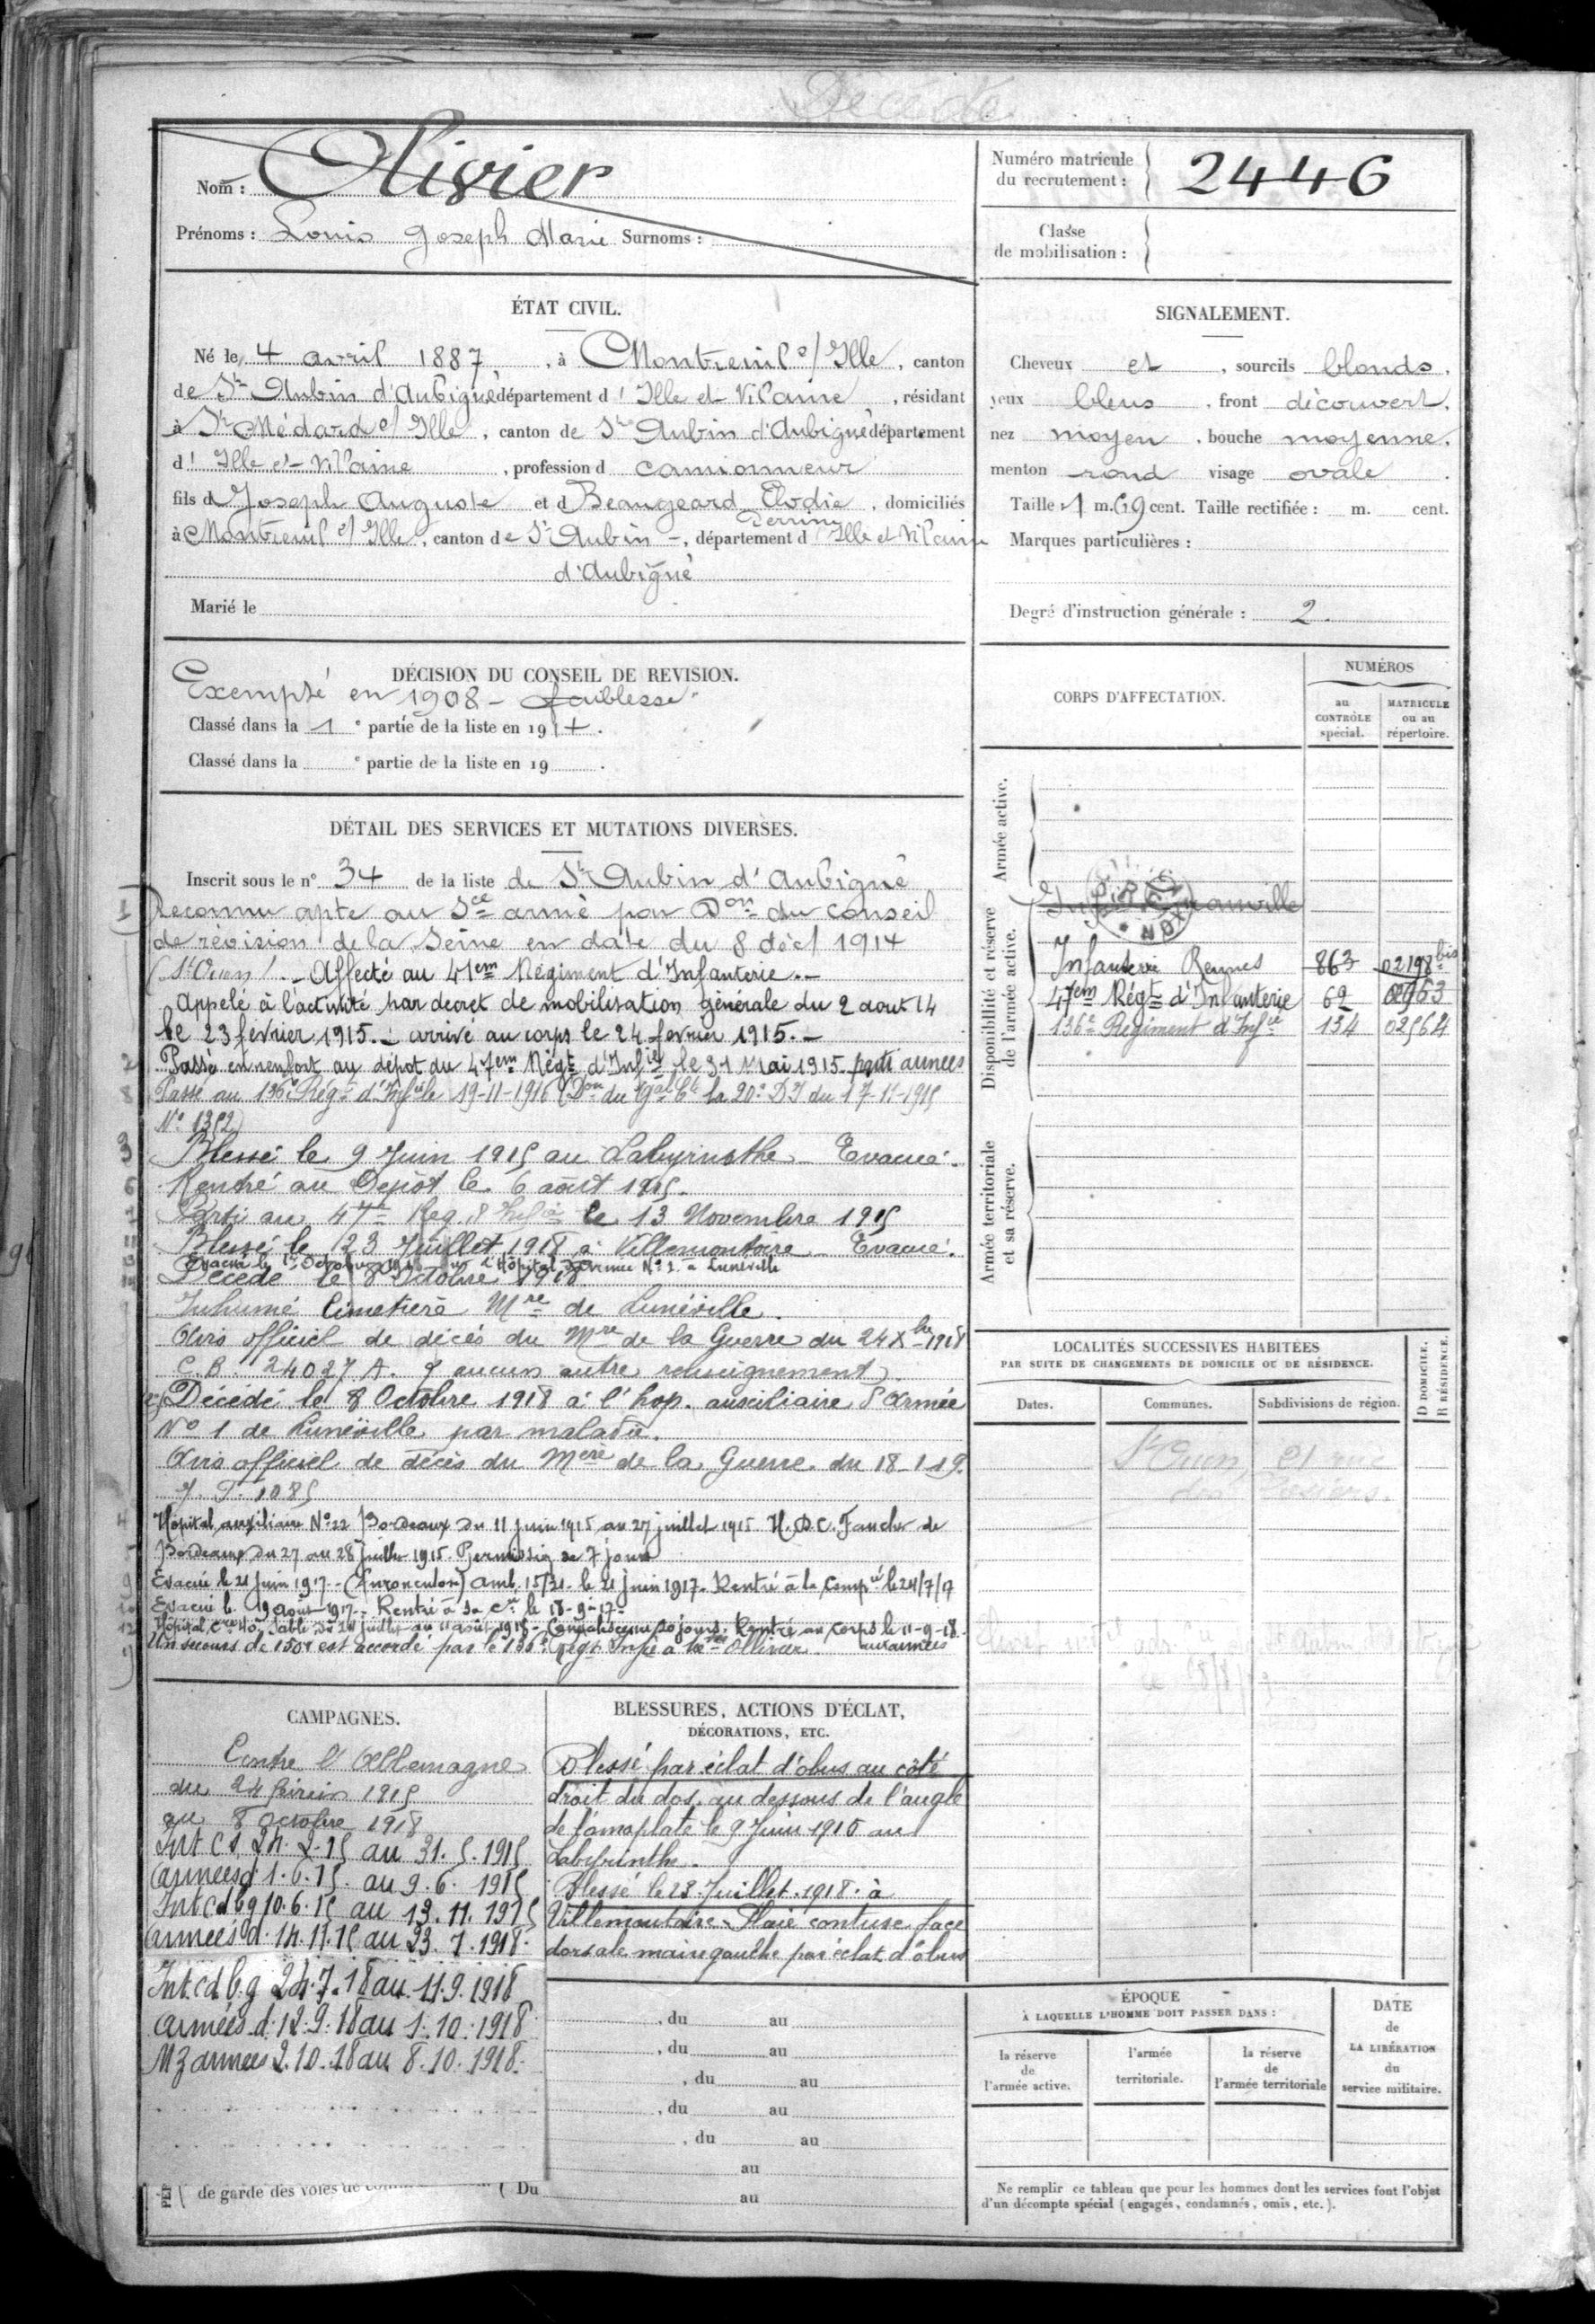 Décédé
Nom : Olivier
Prénoms : Louis Joseph Marie Surnoms :
Numéro matricule du recrutement : 2446
Classe de mobilisation :
ÉTAT CIVIL.
Né le 4 avril 1887, à Montreuil s/ Ille, canton
de St Aubin d'Aubigné département d' Ille et Vilaine, résidant
à St Médard s/ Ille, canton de St Aubin d'Aubigné département
d' Ille et Vilaine, profession d camionneur
fils d Joseph Auguste et d Beaugeard Élodie, domiciliés
Perrine
à Montreuil s/ Ille, canton de St Aubin -, département d' Ille et Vilaine
d'Aubigné
Marié le
SIGNALEMENT.
Cheveux et, sourcils blonds,
yeux bleus, front découvert,
nez moyen, bouche moyenne,
menton rond visage ovale.
Taille : 1 m. 69 cent. Taille rectifiée : m. cent.
Marques particulières :
Degré d'instruction générale : 2.
DÉCISION DU CONSEIL DE REVISION.
Exempté en 1908 - faiblesse
Classé dans la 1e partie de la liste en 1914.
Classé dans la e partie de la liste en 19 .
DÉTAIL DES SERVICES ET MUTATIONS DIVERSES.
Inscrit sous le n° 34 de la liste de St Aubin d'Aubigné
1 Reconnu apte au Sce armé par Don du conseil
de révision de la Seine en date du 8 déc/ 1914
(St Ouen). - Affecté au 41em Régiment d'Infanterie. -
Appelé à l'activité par decret de mobilisation générale du 2 aout 14
le 23 fevrier 1915. - arrivé au corps le 24 fevrier 1915. -
2 Passé en renfort au dépot du 47em Régt d'Infie le 31 Mai 1915. parti armées
8 Passé au 136e Régt d'Infie le 19-11-1916 (Don du Gal Ct la 20e DI du 17-11-1915
N° 1352)
3 Blessé le 9 Juin 1915 au Labyrinthe - Evacué.
6 Rentré au Dépôt le 6 août 1915.
7 Parti au 47e Reg. d'Infie le 13 Novembre 1915
11 Blessé le 23 Juillet 1918 à Villemontoire - Evacué.
Evacué le 1er Octobre 1918 sur l'Hôpital d'armée N° 1. à Lunéville
Décédé le 8 Octobre 1918
Inhumé Cimetière Mre de Lunéville.
Avis officiel de décés du Mre de la Guerre du 24 Xbre 1918
C.B. 24027 A. (aucun autre renseignement).
Décédé le 8 Octobre 1918 à l'hop. auxiliaire d'Armée
N° 1 de Lunéville par maladie.
Avis officiel de décès du Mère de la Guerre du 18-1-19.
1085
4 Hôpital auxiliaire N° 22 Bordeaux du 11 juin 1915 au 27 juillet 1915. H.D.C. Faucher de
5 Bordeaux du 27 au 28 Juillet 1915. Permission de 7 jours
9 Evacué le 21 Juin 1917 - amb. 15/21. le 21 Juin 1917. Rentré à la Compie le 24/7/17
10 Evacué le 19 août 1917. - Rentré à sa Cie le 18-9-17 -
12 Hôpital Cre 40, Sablé du 24 juillet au 11 août 1918 - Convalescence 20 jours. Rentré au Corps le 11-9-18.
aux armées
Un secours de 150f est accordé par le 136e Régt Infie à Mme Ollivier.
CORPS D'AFFECTATION.
NUMÉROS
au CONTRÔLE spécial.
MATRICULE ou au répertoire.
Armée active.
Disponibilité et réserve de l'armée active.
Infanterie Rennes 863 02198 bis
47em Régt d'Infanterie 69 02963
136e Régiment d'Infie 134 02564
Armée territoriale et sa réserve.
LOCALITÉS SUCCESSIVES HABITÉES
PAR SUITE DE CHANGEMENTS DE DOMICILE OU DE RÉSIDENCE.
Dates. Communes. Subdivisions de région. D DOMICILE. R RÉSIDENCE.
St Ouen, 21 rue
des Rosiers.
CAMPAGNES.
Contre l'Allemagne
du 24 février 1915
au 8 Octobre 1918
Int CS. 24. 2. 15 au 31. 5. 1915
armées d. 1. 6. 15. au 9. 6. 1915
Int cd bg 10. 6. 15 au 13. 11. 1915
armées d. 14. 11. 15 au 23. 7. 1918.
Int. cd b.g 24. 7. 18 au 11. 9. 1918
armées d. 12. 9. 18 au 1. 10. 1918
M3 armées 2. 10. 18 au 8. 10. 1918.
de garde des voies de
( Du
BLESSURES, ACTIONS D'ÉCLAT,
DÉCORATIONS, ETC.
Blessé par éclat d'obus au côté
droit du dos, au dessous de l'angle
de l'omoplate le 9 Juin 1915 au
Labyrinthe.
Blessé le 23. Juillet. 1918. à
Villemontoire. Plaie contuse face
dorsale main gauche par éclat d'obus
, du au
, du au
, du au
, du au
, du au
au
au
ÉPOQUE
À LAQUELLE L'HOMME DOIT PASSER DANS :
la réserve de l'armée active.
l'armée territoriale.
la réserve de l'armée territoriale
DATE de LA LIBÉRATION du service militaire.
Ne remplir ce tableau que pour les hommes dont les services font l'objet
d'un décompte spécial (engagés, condamnés, omis, etc.).